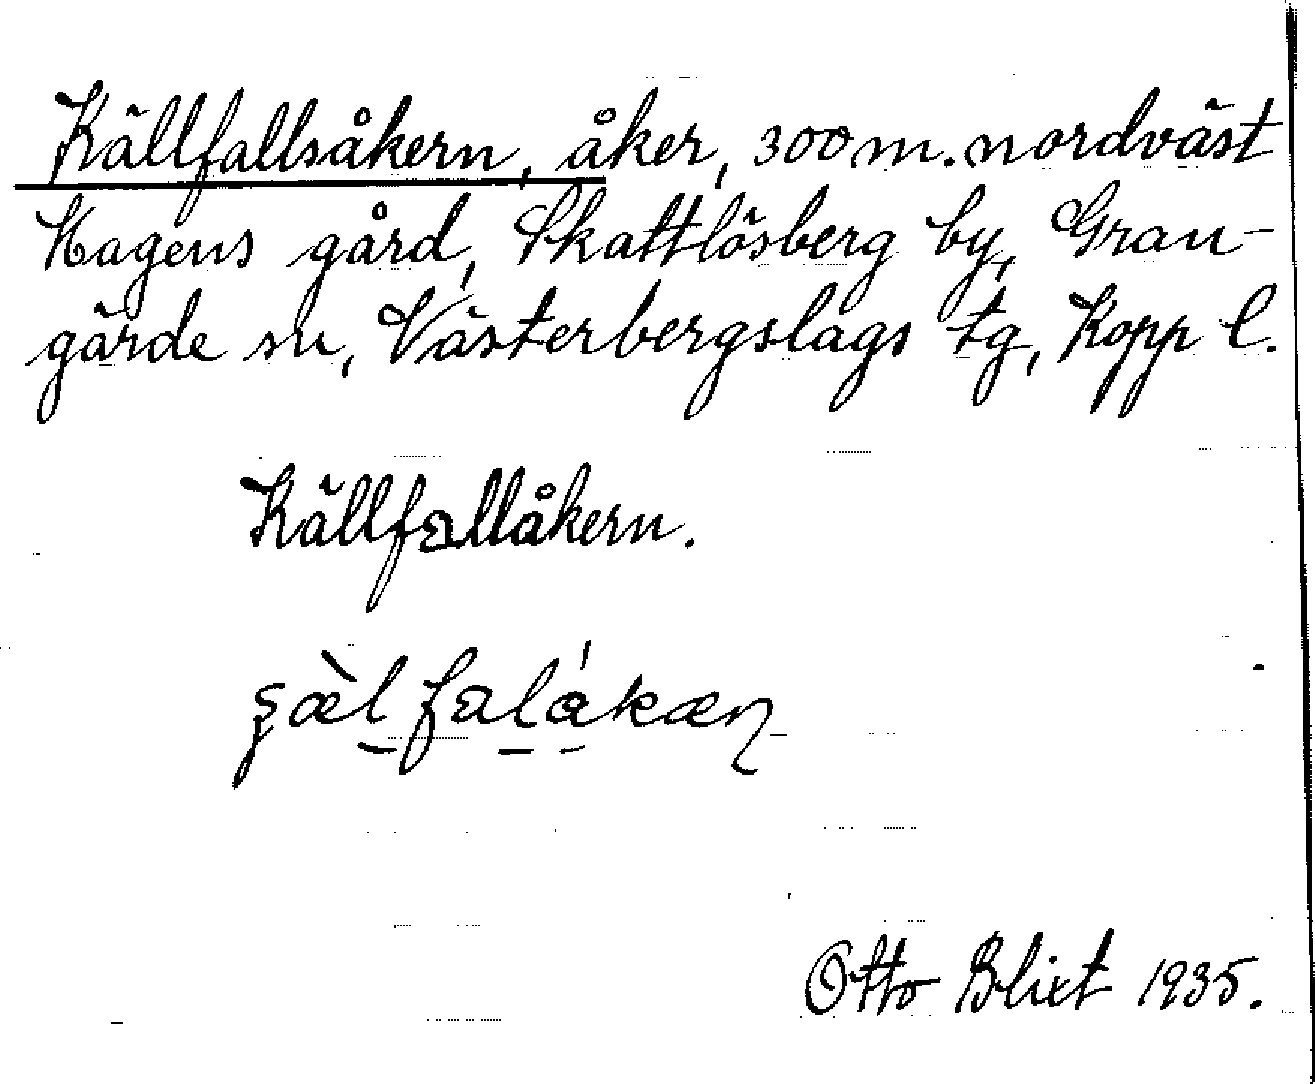 Källfallsåkern, åker, 300 m. nordväst
Hagens gård, Skattlösberg by, Gran-
gärde sn, Västerbergslags tg, Kopp l.
Källfallåkern.
Otto Blixt 1935.